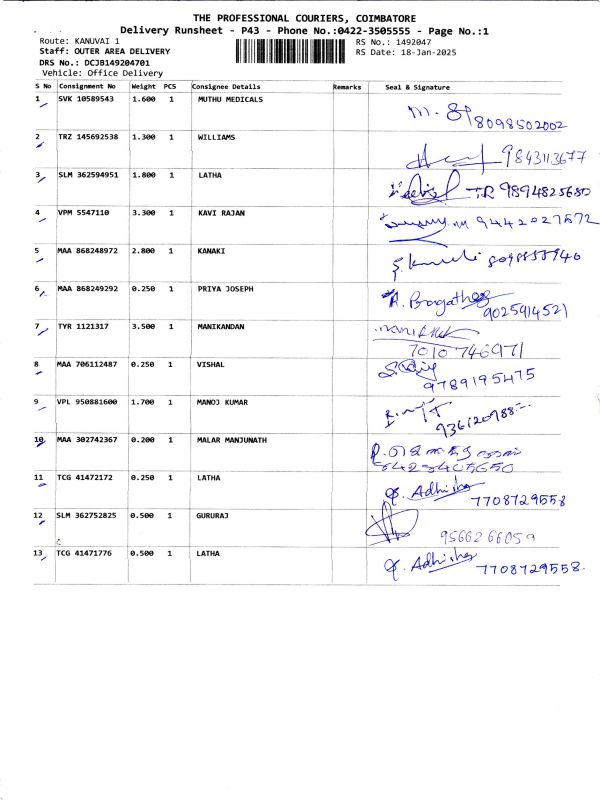 THE PROFESSIONAL COURIERS, COIMBATORE
Delivery Runsheet - P43 - Phone No.:0422-3505555 - Page No.:1
Route: KANUVAI 1 RS No.: 1492047
Staff: OUTER AREA DELIVERY RS Date: 18-Jan-2025
DRS No.: DCJB149204701
Vehicle: Office Delivery
S No Consignment No Weight PCS Consignee Details Remarks Seal & Signature
1 SVK 10589543 1.600 1 MUTHU MEDICALS
8098502002
2 TRZ 145692538 1.300 1 WILLIAMS
9843113677
3 SLM 362594951 1.800 1 LATHA
TR 9894825680
4 VPM 5547110 3.300 1 KAVI RAJAN
9442027572
5 MAA 868248972 2.800 1 KANAKI
6 MAA 868249292 0.250 1 PRIYA JOSEPH
9025914521
7 TYR 1121317 3.500 1 MANIKANDAN
7010746971
8 MAA 706112487 0.250 1 VISHAL
9789195475
9 VPL 950881600 1.700 1 MANOJ KUMAR
10 MAA 302742367 0.200 1 MALAR MANJUNATH
11 TCG 41472172 0.250 1 LATHA
7708729558
12 SLM 362752825 0.500 1 GURURAJ
9566266059
13 TCG 41471776 0.500 1 LATHA
7708729558.